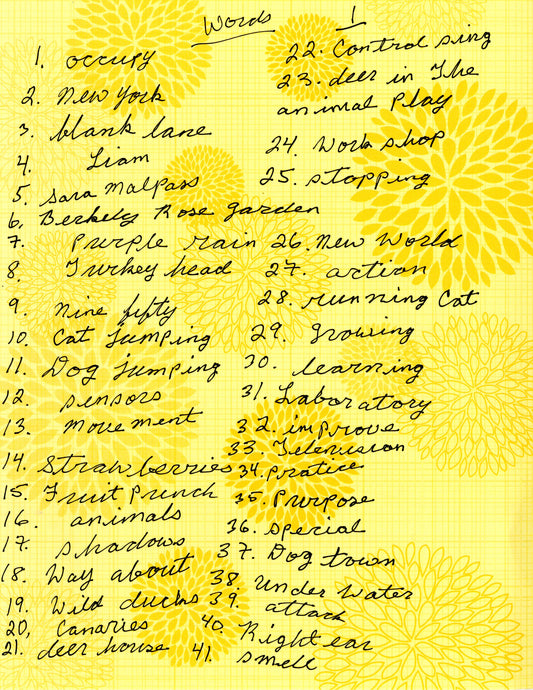 Words 1
1. occupy
2. New York
3. blank lane
4. Liam
5. Sara Malpass
6. Berkeley Rose garden
7. Purple rain
8. Turkey head
9. nine fifty
10. Cat Jumping
11. Dog jumping
12. sensors
13. movement
14. Strawberries
15. Fruit Punch
16. animals
17. shadows
18. Way about
19. Wild ducks
20, Canaries
21. deer house
22. Control sing
23. deer in The
animal Play
24 Work shop
25. stopping
26. New World
27. action
28. running Cat
29. Growing
30. learning
31. Laboratory
32. improve
33. Television
34. pratice
35. Purpose
36. special
37. Dog town
38. Under Water
39. attack
40. Right ear
41. smell